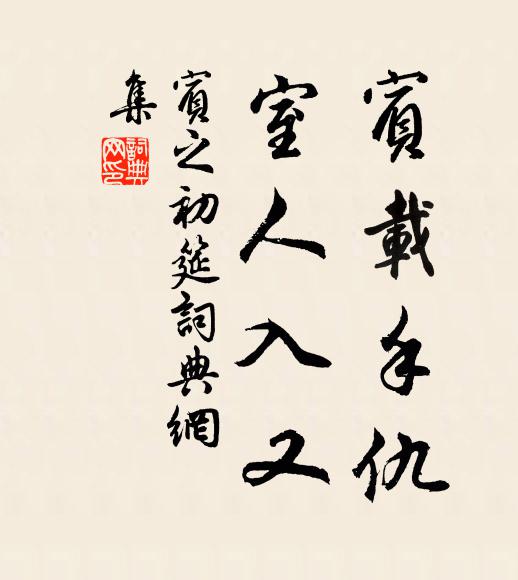 賓載手仇
室人入又
賓之初筵詞典網
集
詞典
网印